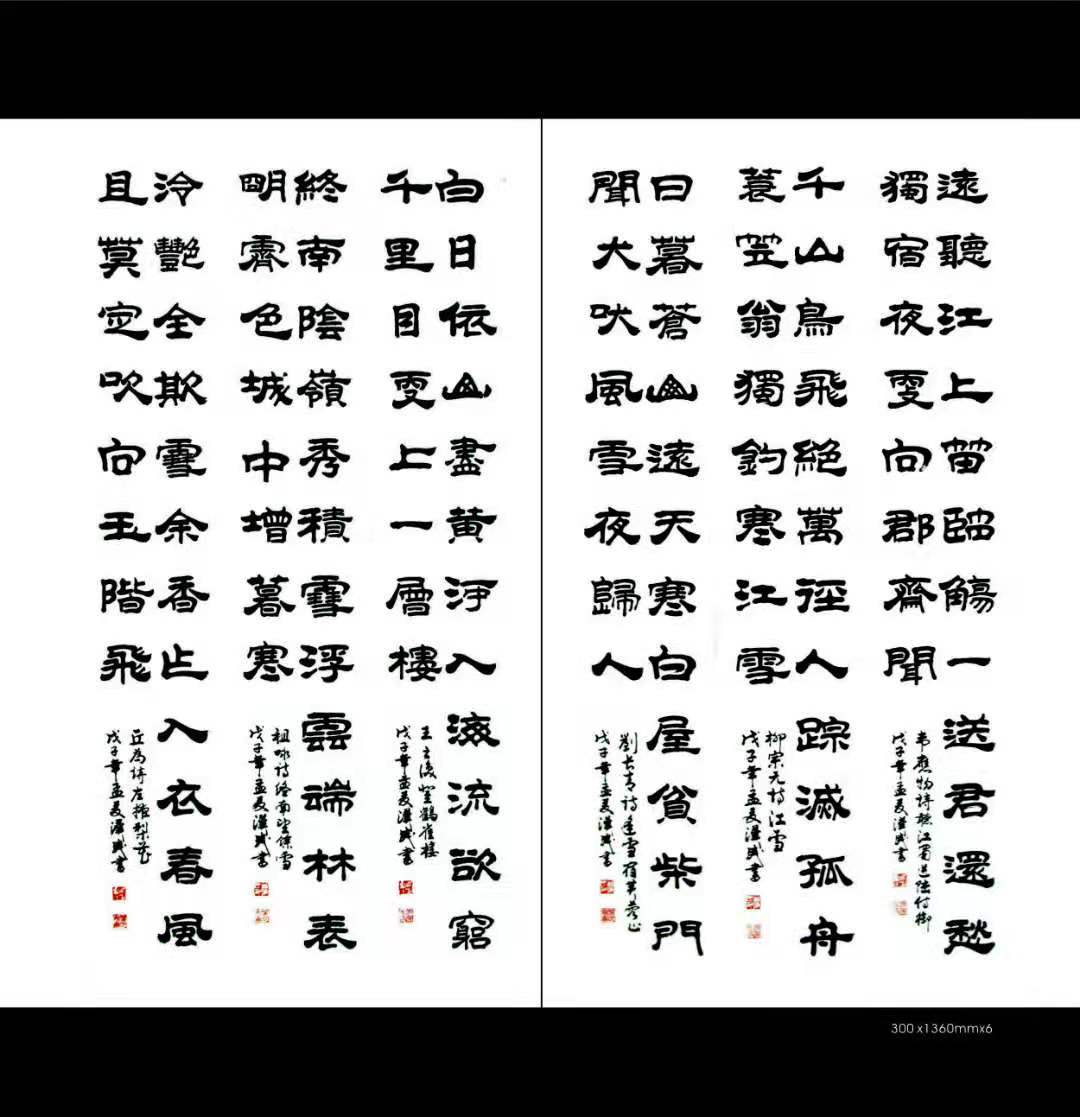 遠聽江上笛臨觴一送君還愁
獨宿夜更向郡齋聞
韋應物詩聽江笛送陸侍御
戊子年孟夏漢書
千山鳥飛絕萬徑人踪滅孤舟
蓑笠翁獨釣寒江雪
柳宗元詩江雪
戊子年孟夏漢書
日暮蒼山遠天寒白屋貧柴門
聞犬吠風雪夜歸人
劉長青詩逢雪宿芙蓉山
戊子年孟夏漢書
白日依山盡黃河入海流欲窮
千里目更上一層樓
王之渙登鸛雀樓
戊子年孟夏漢書
終南陰嶺秀積雪浮雲端林表
明霽色城中增暮寒
祖咏詩終南望餘雪
戊子年孟夏漢書
冷豔全欺雪余香乍入衣春風
且莫定吹向玉階飛
丘為詩左掖梨花
戊子年孟夏漢書
300 x1360mmx6